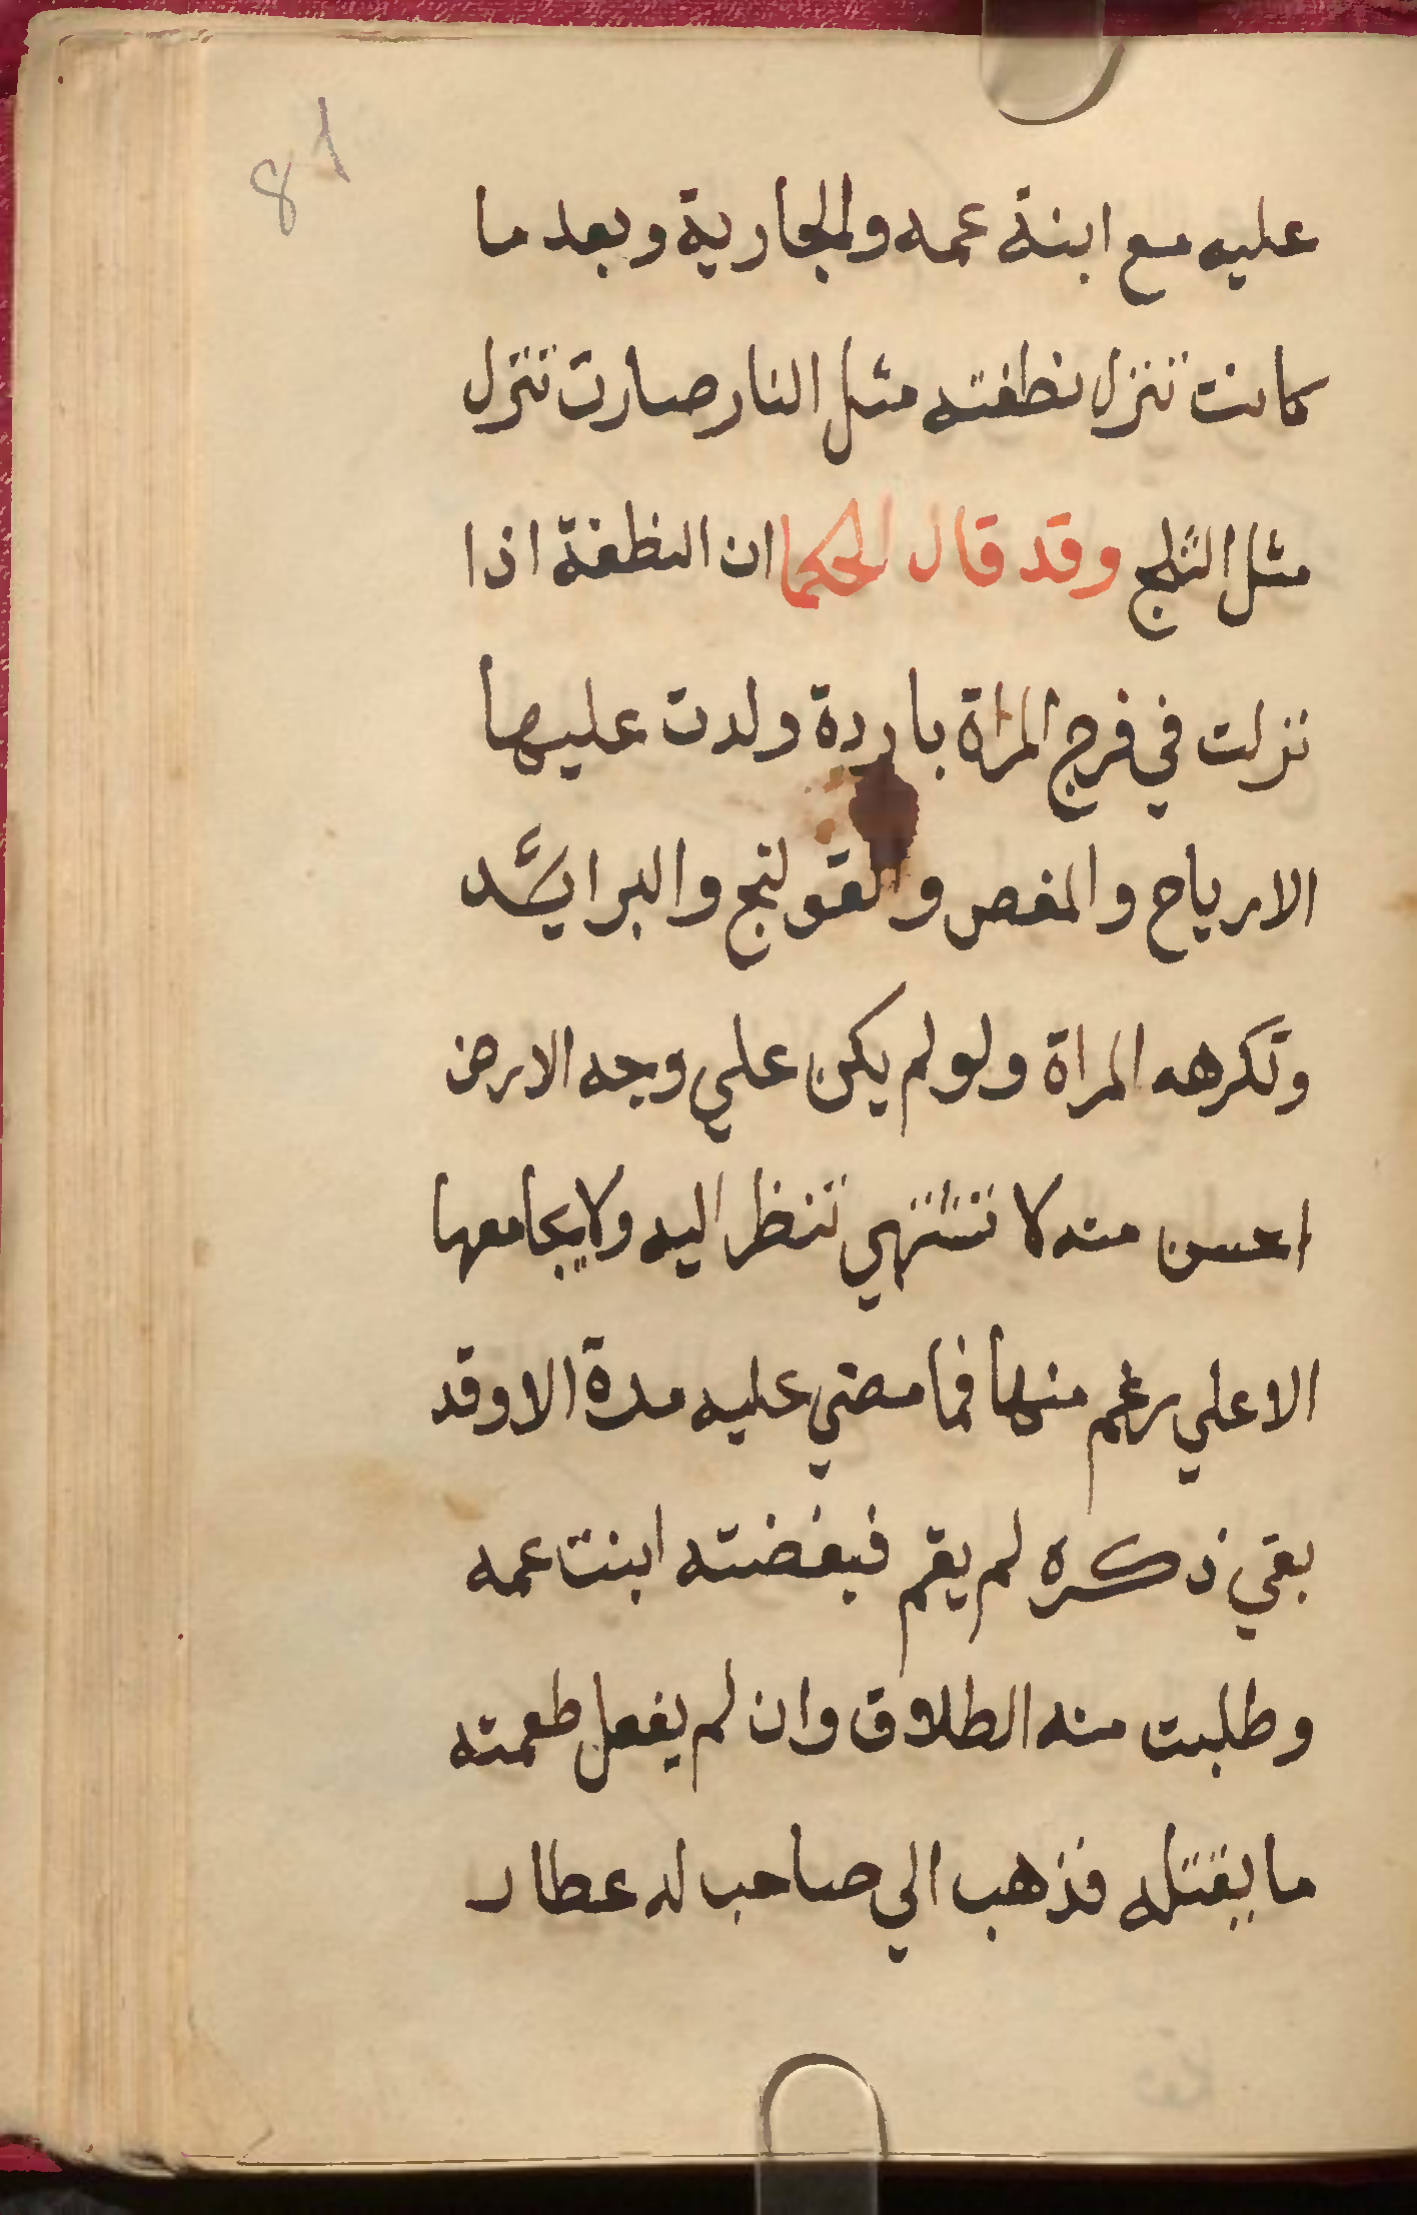 81
عليه مع ابنة عمه والجارية وبعد ما
كانت تنزل نطفته مثل النار صارت تنزل
مثل الثلج وقد قال الحكما ان النطفة اذا
نزلت في فرج المراة باردة ولدت عليها
الارياح والمغص والقولنج والبرا يشد
وتكرهه المراة ولو لم يكن علي وجه الارض
احسن منه لا تشتهي تنظر اليه ولا يجامعها
الا علي رغم منها فما مضي عليه مدة الا وقد
بقي ذكره لم يقم فبغضته ابنت عمه
وطلبت منه الطلاق وان لم يفعل طعمته
ما يقتله فذهب الي صاحب له عطار